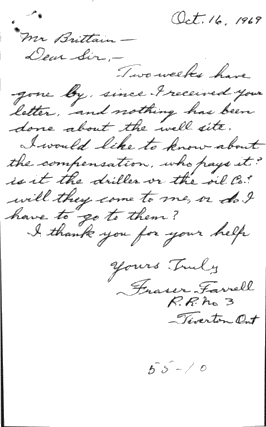 Oct. 16, 1969
Mr Brittain —
Dear Sir, —
Two weeks have
gone by, since I received your
letter, and nothing has been
done about the well site.
I would like to know about
the compensation, who pays it?
is it the driller or the oil Co.?
will they come to me, or do I
have to go to them?
I thank you for your help
Yours Truly
Fraser Farrell
R.R. No 3
Tiverton Ont
55-10